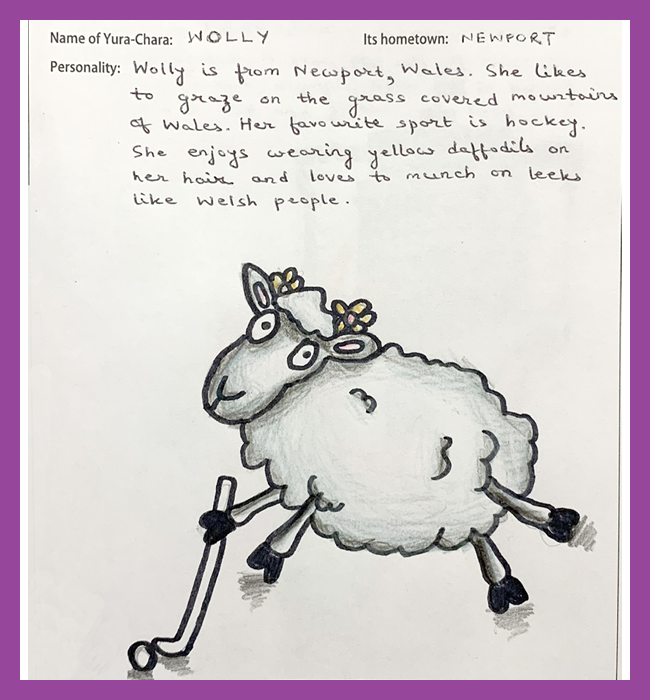 Name of Yura-Chara: WOLLY Its hometown: NEWPORT
Personality: Wolly is from Newport, Wales. She likes
to graze on the grass covered mountains
of Wales. Her favourite sport is hockey.
She enjoys wearing yellow daffodils on
her hair and loves to munch on leeks
like Welsh people.